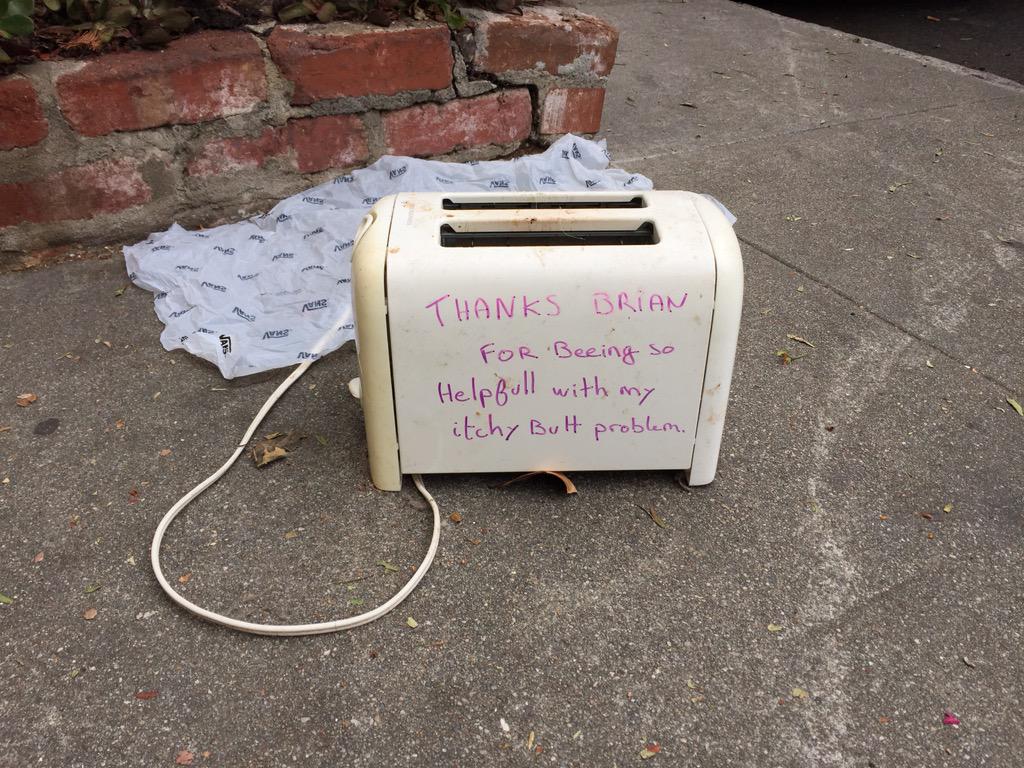 THANKS BRIAN
FOR Beeing so
Helpfull with my
itchy Butt problem.
VANS